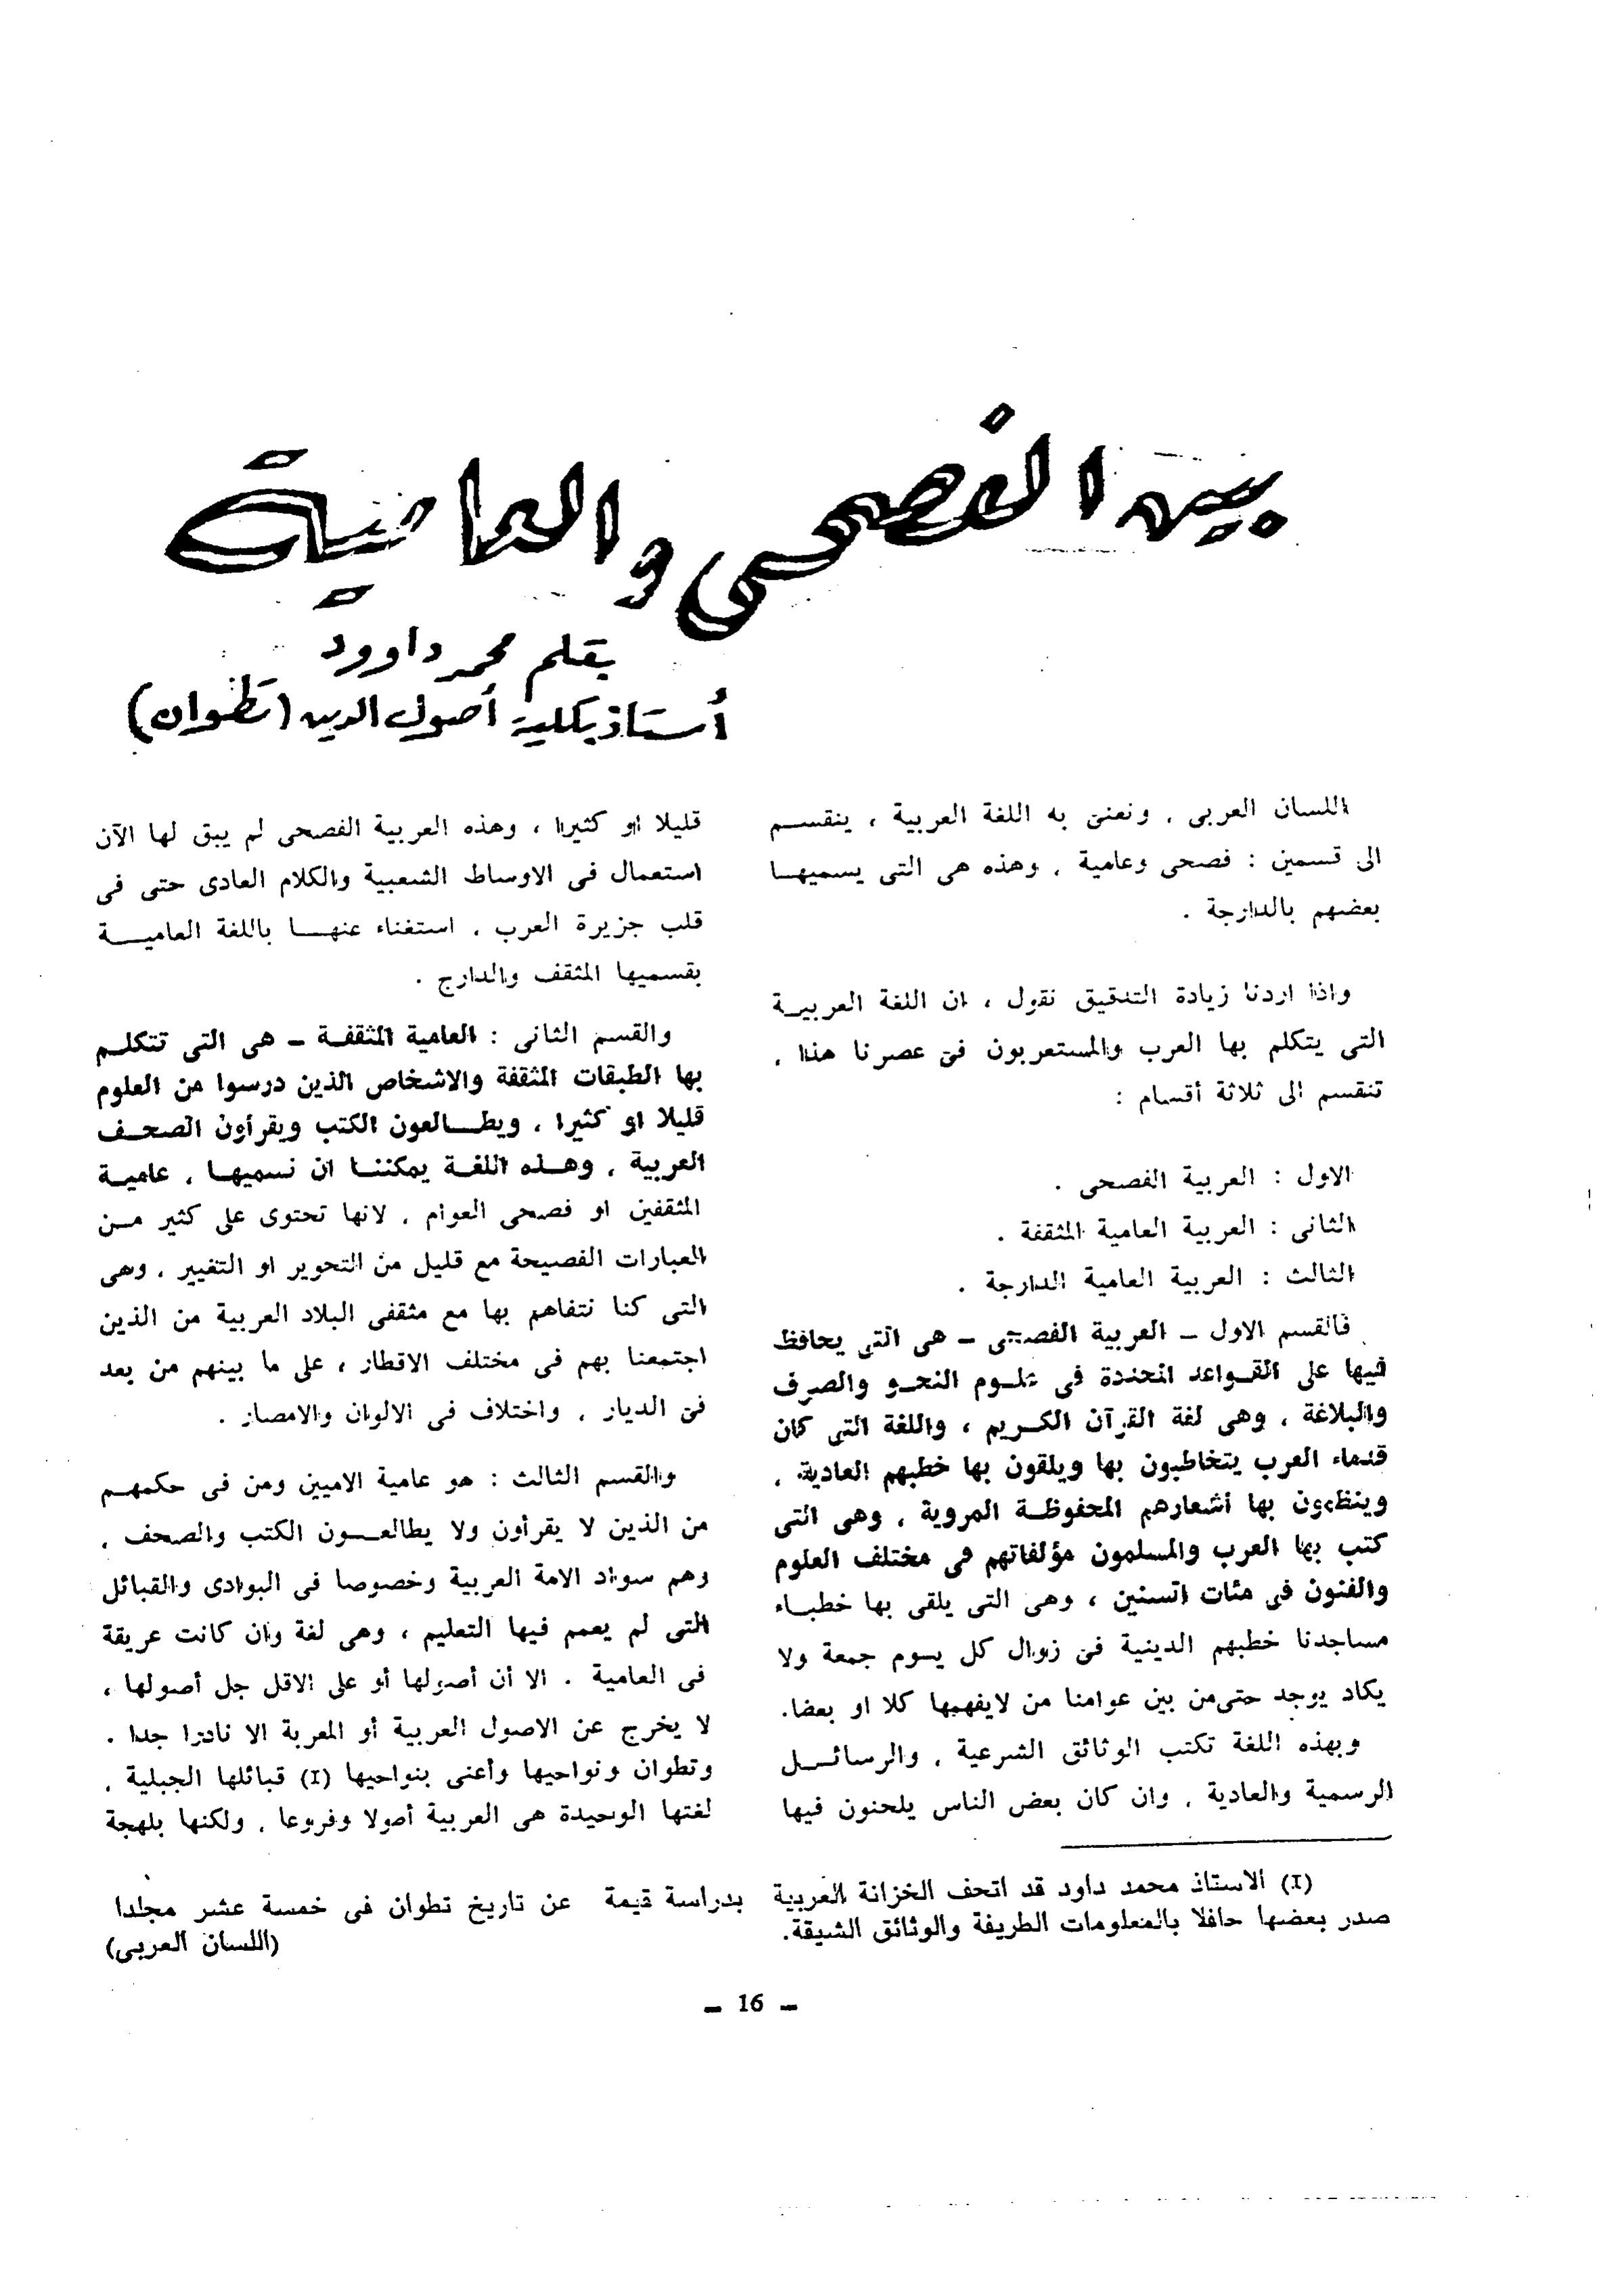 بين الفصحى والعامية
بقلم محمد داوود
أستاذ بكلية أصول الدين (تطوان)
اللسان العربى ، ونعنى به اللغة العربية ، ينقسم
الى قسمين : فصحى وعامية ، وهذه هى التى يسميها
بعضهم بالدارجة .
واذا اردنا زيادة التدقيق نقول ، ان اللغة العربية
التى يتكلم بها العرب والمستعربون فى عصرنا هذا ،
تنقسم الى ثلاثة أقسام :
الاول : العربية الفصحى .
الثانى : العربية العامية المثقفة .
الثالث : العربية العامية الدارجة .
فالقسم الاول – العربية الفصحى – هى التى يحافظ
فيها على القواعد المحددة فى علوم النحو والصرف
والبلاغة ، وهى لغة القرآن الكريم ، واللغة التى كان
قدماء العرب يتخاطبون بها ويلقون بها خطبهم العادية ،
وينظمون بها أشعارهم المحفوظة المروية ، وهى التى
كتب بها العرب والمسلمون مؤلفاتهم فى مختلف العلوم
والفنون فى مئات السنين ، وهى التى يلقى بها خطباء
مساجدنا خطبهم الدينية فى زوال كل يسوم جمعة ولا
يكاد يوجد حتى من بين عوامنا من لايفهمها كلا او بعضا.
وبهذه اللغة تكتب الوثائق الشرعية ، والرسائل
الرسمية والعادية ، وان كان بعض الناس يلحنون فيها
قليلا او كثيرا ، وهذه العربية الفصحى لم يبق لها الآن
استعمال فى الاوساط الشعبية والكلام العادى حتى فى
قلب جزيرة العرب ، استغناء عنها باللغة العامية
بقسميها المثقف والدارج .
والقسم الثانى : العامية المثقفة – هى التى تتكلم
بها الطبقات المثقفة والاشخاص الذين درسوا من العلوم
قليلا او كثيرا ، ويطالعون الكتب ويقرأون الصحف
العربية ، وهذه اللغة يمكننا ان نسميها ، عامية
المثقفين او فصحى العوام ، لانها تحتوى على كثير من
العبارات الفصيحة مع قليل من التحوير او التغيير ، وهى
التى كنا نتفاهم بها مع مثقفى البلاد العربية من الذين
اجتمعنا بهم فى مختلف الاقطار ، على ما بينهم من بعد
فى الديار ، واختلاف فى الالوان والامصار .
والقسم الثالث : هو عامية الاميين ومن فى حكمهم
من الذين لا يقرأون ولا يطالعون الكتب والصحف ،
وهم سواد الامة العربية وخصوصا فى البوادى والقبائل
التى لم يعمم فيها التعليم ، وهى لغة وان كانت عريقة
فى العامية . الا أن أصولها أو على الاقل جل أصولها ،
لا يخرج عن الاصول العربية أو المعربة الا نادرا جدا .
وتطوان ونواحيها وأعنى بنواحيها (I) قبائلها الجبلية ،
لغتها الوحيدة هى العربية أصولا وفروعا ، ولكنها بلهجة
(I) الاستاذ محمد داود قد اتحف الخزانة العربية بدراسة قيمة عن تاريخ تطوان فى خمسة عشر مجلدا
صدر بعضها حافلا بالمعلومات الطريفة والوثائق الشيقة. (اللسان العربى)
– 16 –